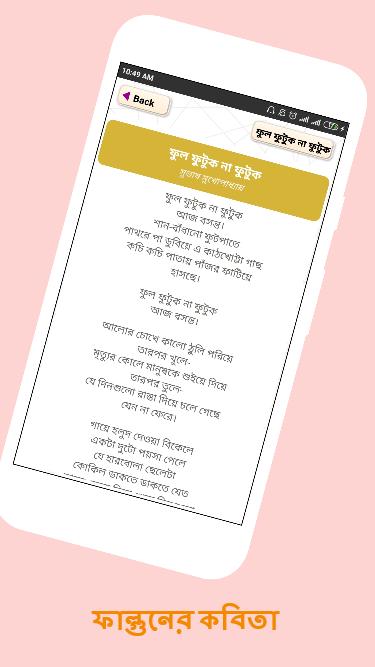 10:49 AM
Back
ফুল ফুটুক না ফুটুক
ফুল ফুটুক না ফুটুক
সুভাষ মুখোপাধ্যায়
ফুল ফুটুক না ফুটুক
আজ বসন্ত।
শান-বাঁধানো ফুটপাতে
পাথরে পা ডুবিয়ে এ কাঠখোট্টা গাছ
কচি কচি পাতায় পাঁজর ফাটিয়ে
হাসছে।
ফুল ফুটুক না ফুটুক
আজ বসন্ত।
আলোর চোখে কালো ঠুলি পরিয়ে
তারপর খুলে-
মৃত্যুর কোলে মানুষকে শুইয়ে দিয়ে
তারপর তুলে-
যে দিনগুলো রাস্তা দিয়ে চলে গেছে
যেন না ফেরে।
গায়ে হলুদ দেওয়া বিকেলে
একটা দুটো পয়সা পেলে
যে হরবোলা ছেলেটা
কোকিল ডাকতে ডাকতে যেত
ফাল্গুনের কবিতা